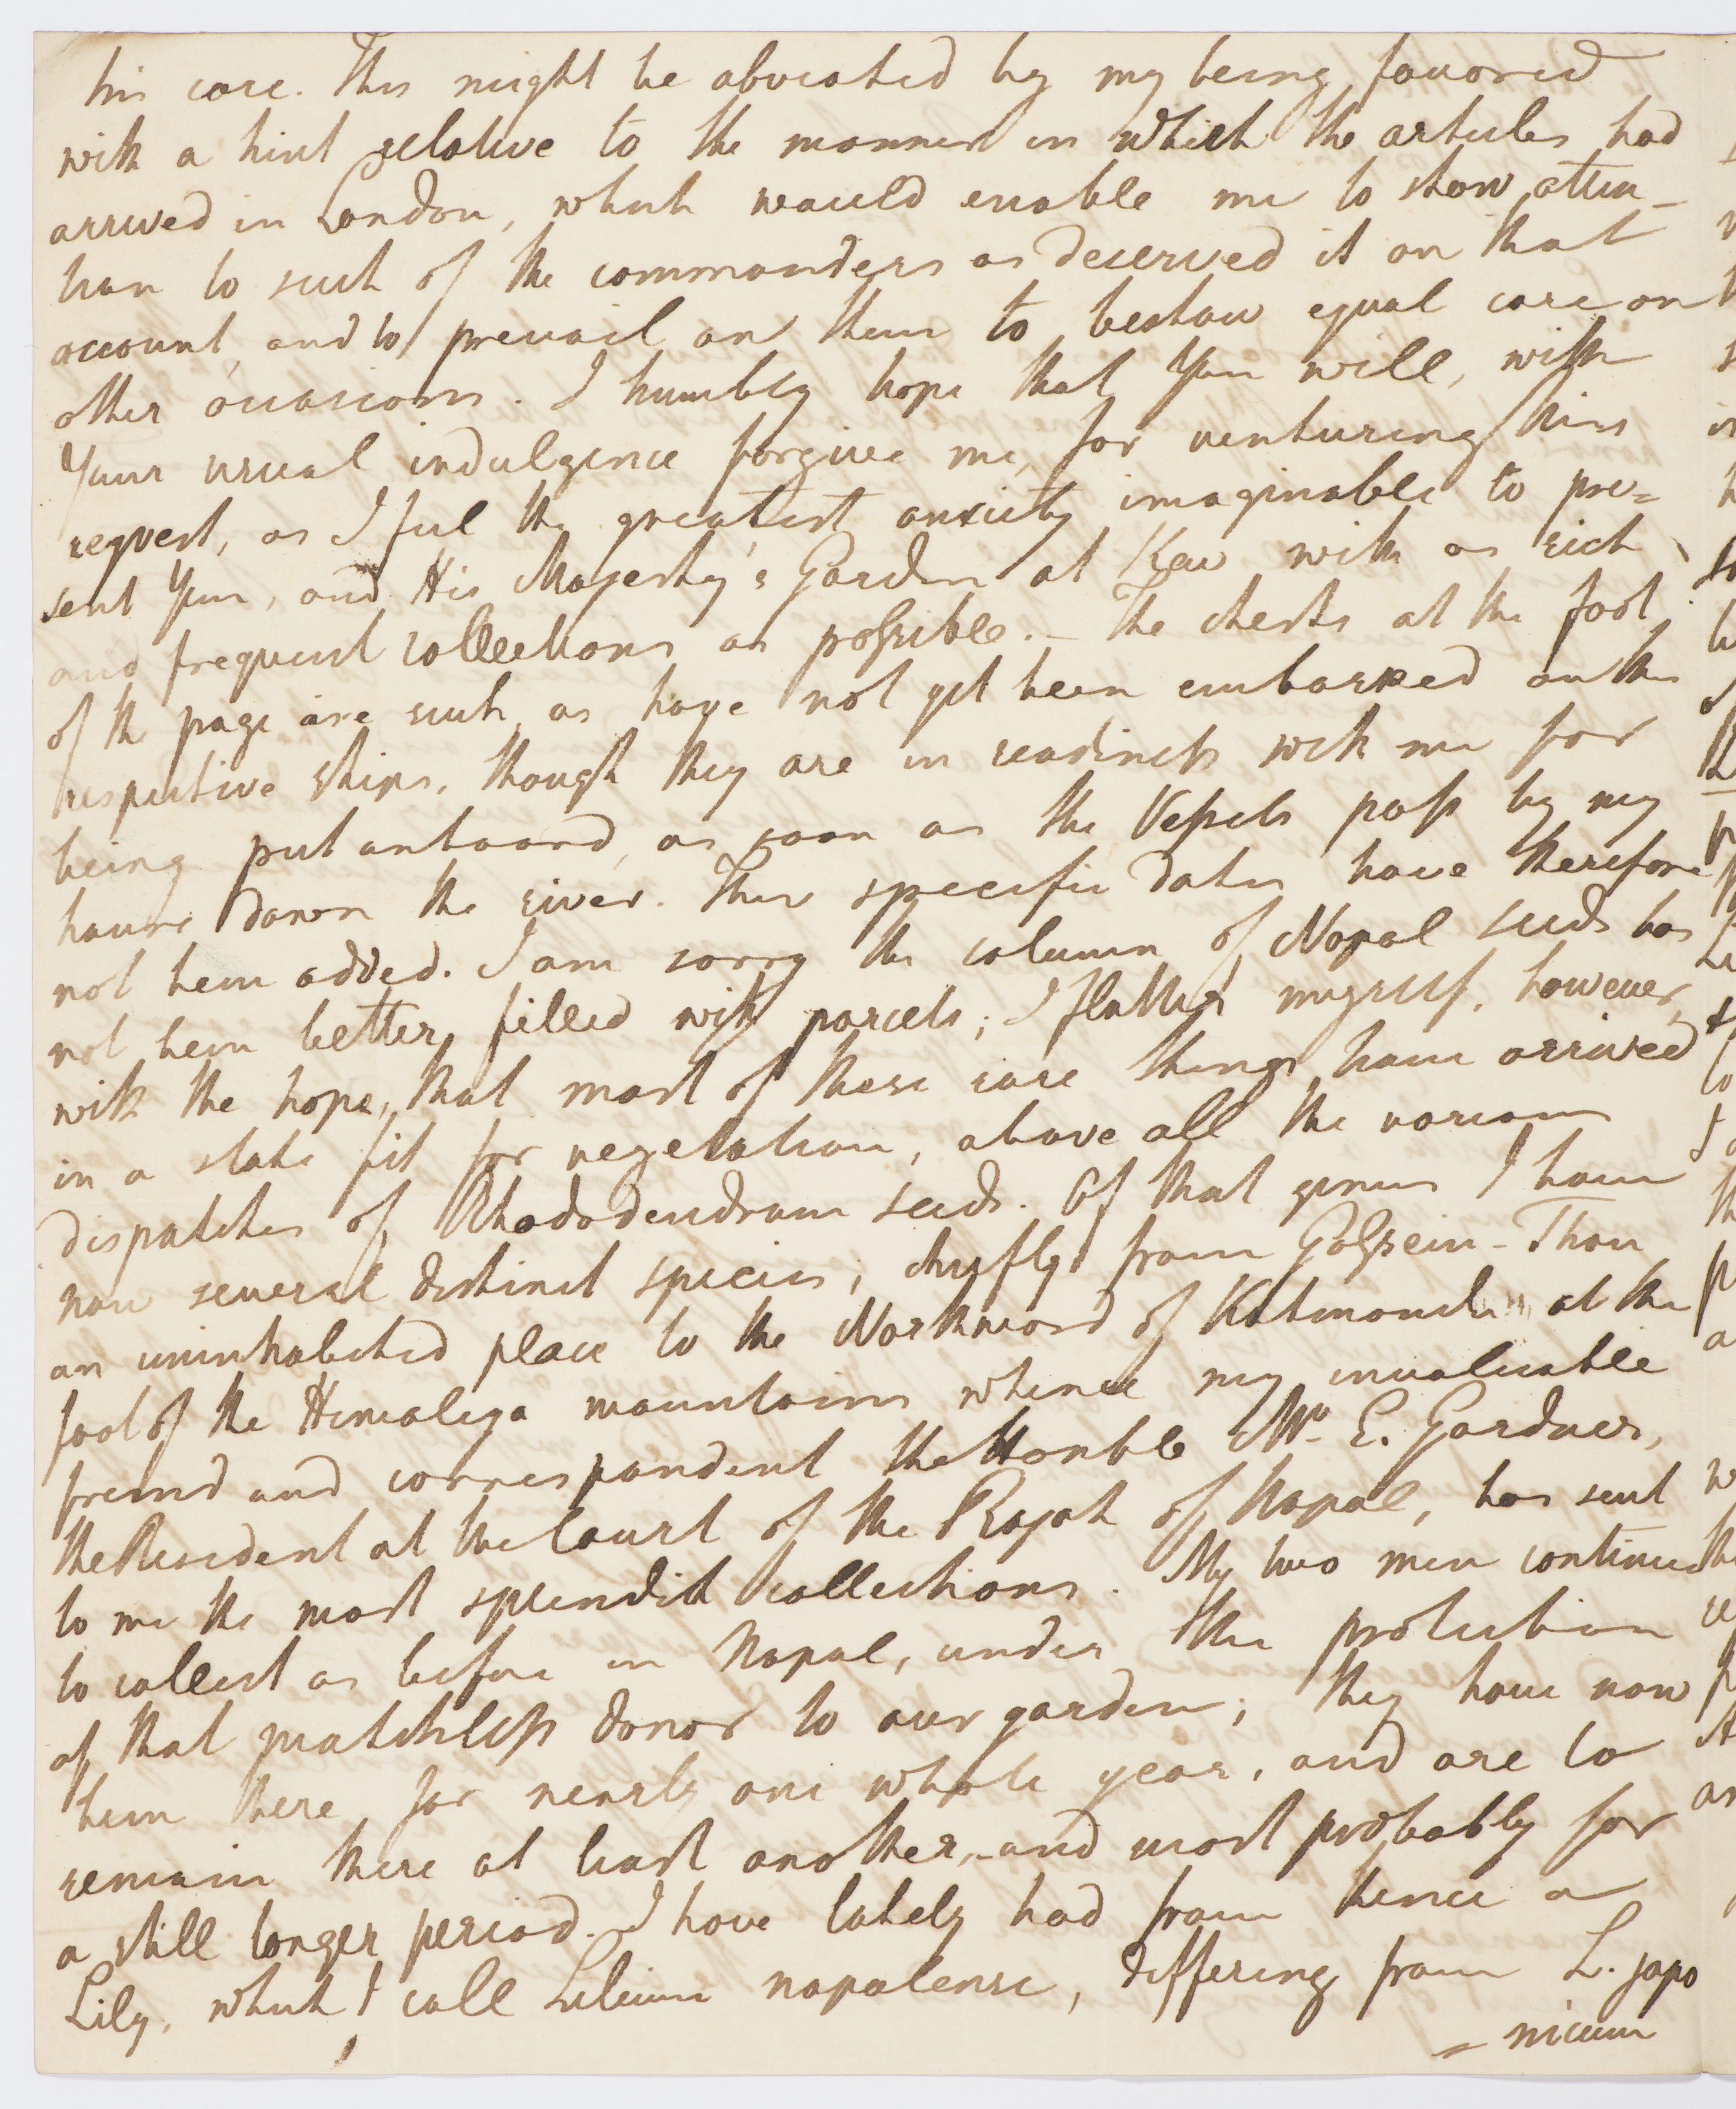 his care. This might be obviated by my being favored
with a hint relative to the manner in which the articles had
arrived in London, which would enable me to show atten-
tion to such of the commanders as deserved it on that
account, and to prevail on them to bestow equal care on
other occasions. I humbly hope that You will, with
Your usual indulgence forgive me, for venturing this
request, as I feel the greatest anxiety imaginable to pre=
sent You, and His Majesty's Garden at Kew with as rich
and frequent collections as possible. – The chests at the foot
of the page are such as have not yet been embarked on the
respective ships, though they are in readiness with me for
being put onboard, as soon as the Vessels pass by my
house down the river. Their specific dates have therefore
not been added. I am sorry the column of Napal seeds has
not been better filled with parcels; I flatter myself, however,
with the hope, that most of these rare things have arrived
in a state fit for vegetation, above all the various
dispatches of Rhododendrum seeds. Of that genus I have
now several distinct species, chiefly from Gossein-Than
an uninhabited place to the Northward of Katmandu at the
foot of the Himaliya mountains whence my invaluable
friend and correspondent the Honble Mr. E. Gardner,
the Resident at the Court of the Rajah of Napal, has sent
to me the most splendid collections. My two men continue
to collect as before in Napal, under the protection
of that matchless donor to our garden; they have now
been there for nearly one whole year, and are to
remain there at least another, and most probably for
a still longer period. I have lately had from thence a
Lily, which I call Lilium napalense, differing from L. japo
= nicum